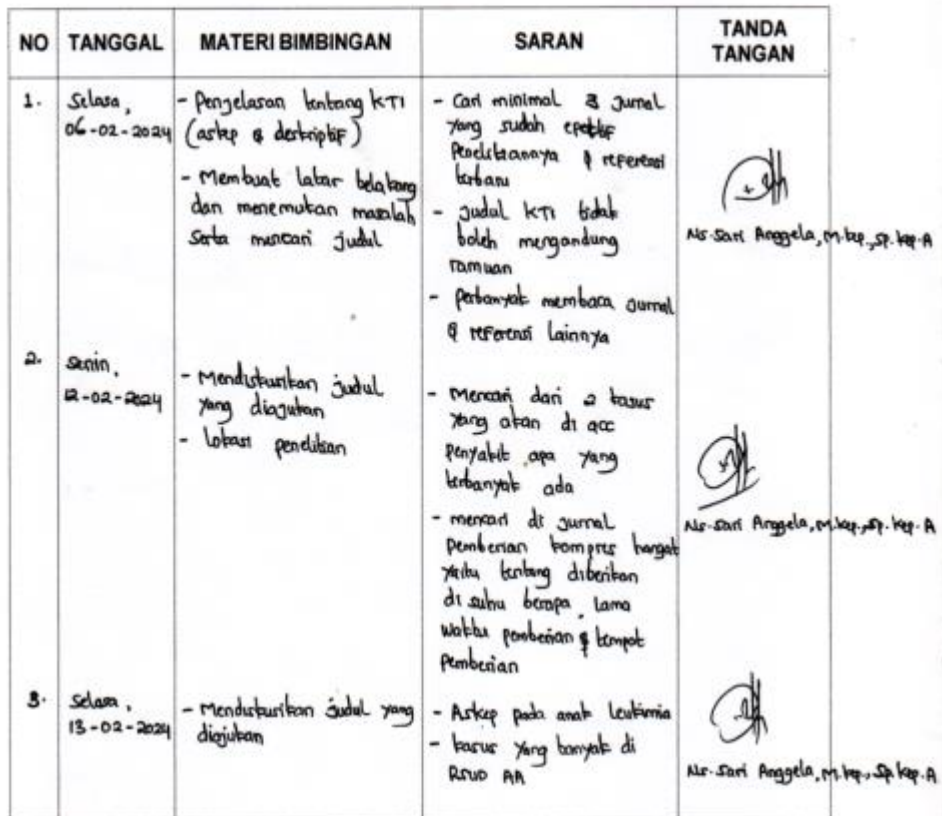 NO TANGGAL MATERI BIMBINGAN SARAN TANDA TANGAN
1.
Selasa,
06-02-2024
- Penjelasan tentang KTI
(askep & deskriptif)
- Membuat latar belakang
dan menemukan masalah
serta mencari judul
- Cari minimal 3 jurnal
yang sudah
penelitiannya & referensi
terbaru
- judul KTI tidak
boleh mengandung
ramuan
- perbanyak membaca jurnal
& referensi lainnya
Ns. Sari Anggela, M.kep., Sp. kep. A
2.
Senin,
12-02-2024
- Mendiskusikan judul
yang diajukan
- lokasi penelitian
- Mencari dari 2 kasus
yang akan di acc
penyakit apa yang
terbanyak ada
- mencari di jurnal
pemberian kompres hangat
yaitu tentang diberikan
di suhu berapa, lama
waktu pemberian & tempat
pemberian
Ns. Sari Anggela, M.kep., Sp. kep. A
3.
Selasa,
13-02-2024
- Mendiskusikan judul yang
diajukan
- Askep pada anak Leukimia
- kasus yang banyak di
RSUD AA
Ns. Sari Anggela, M.kep., Sp. kep. A